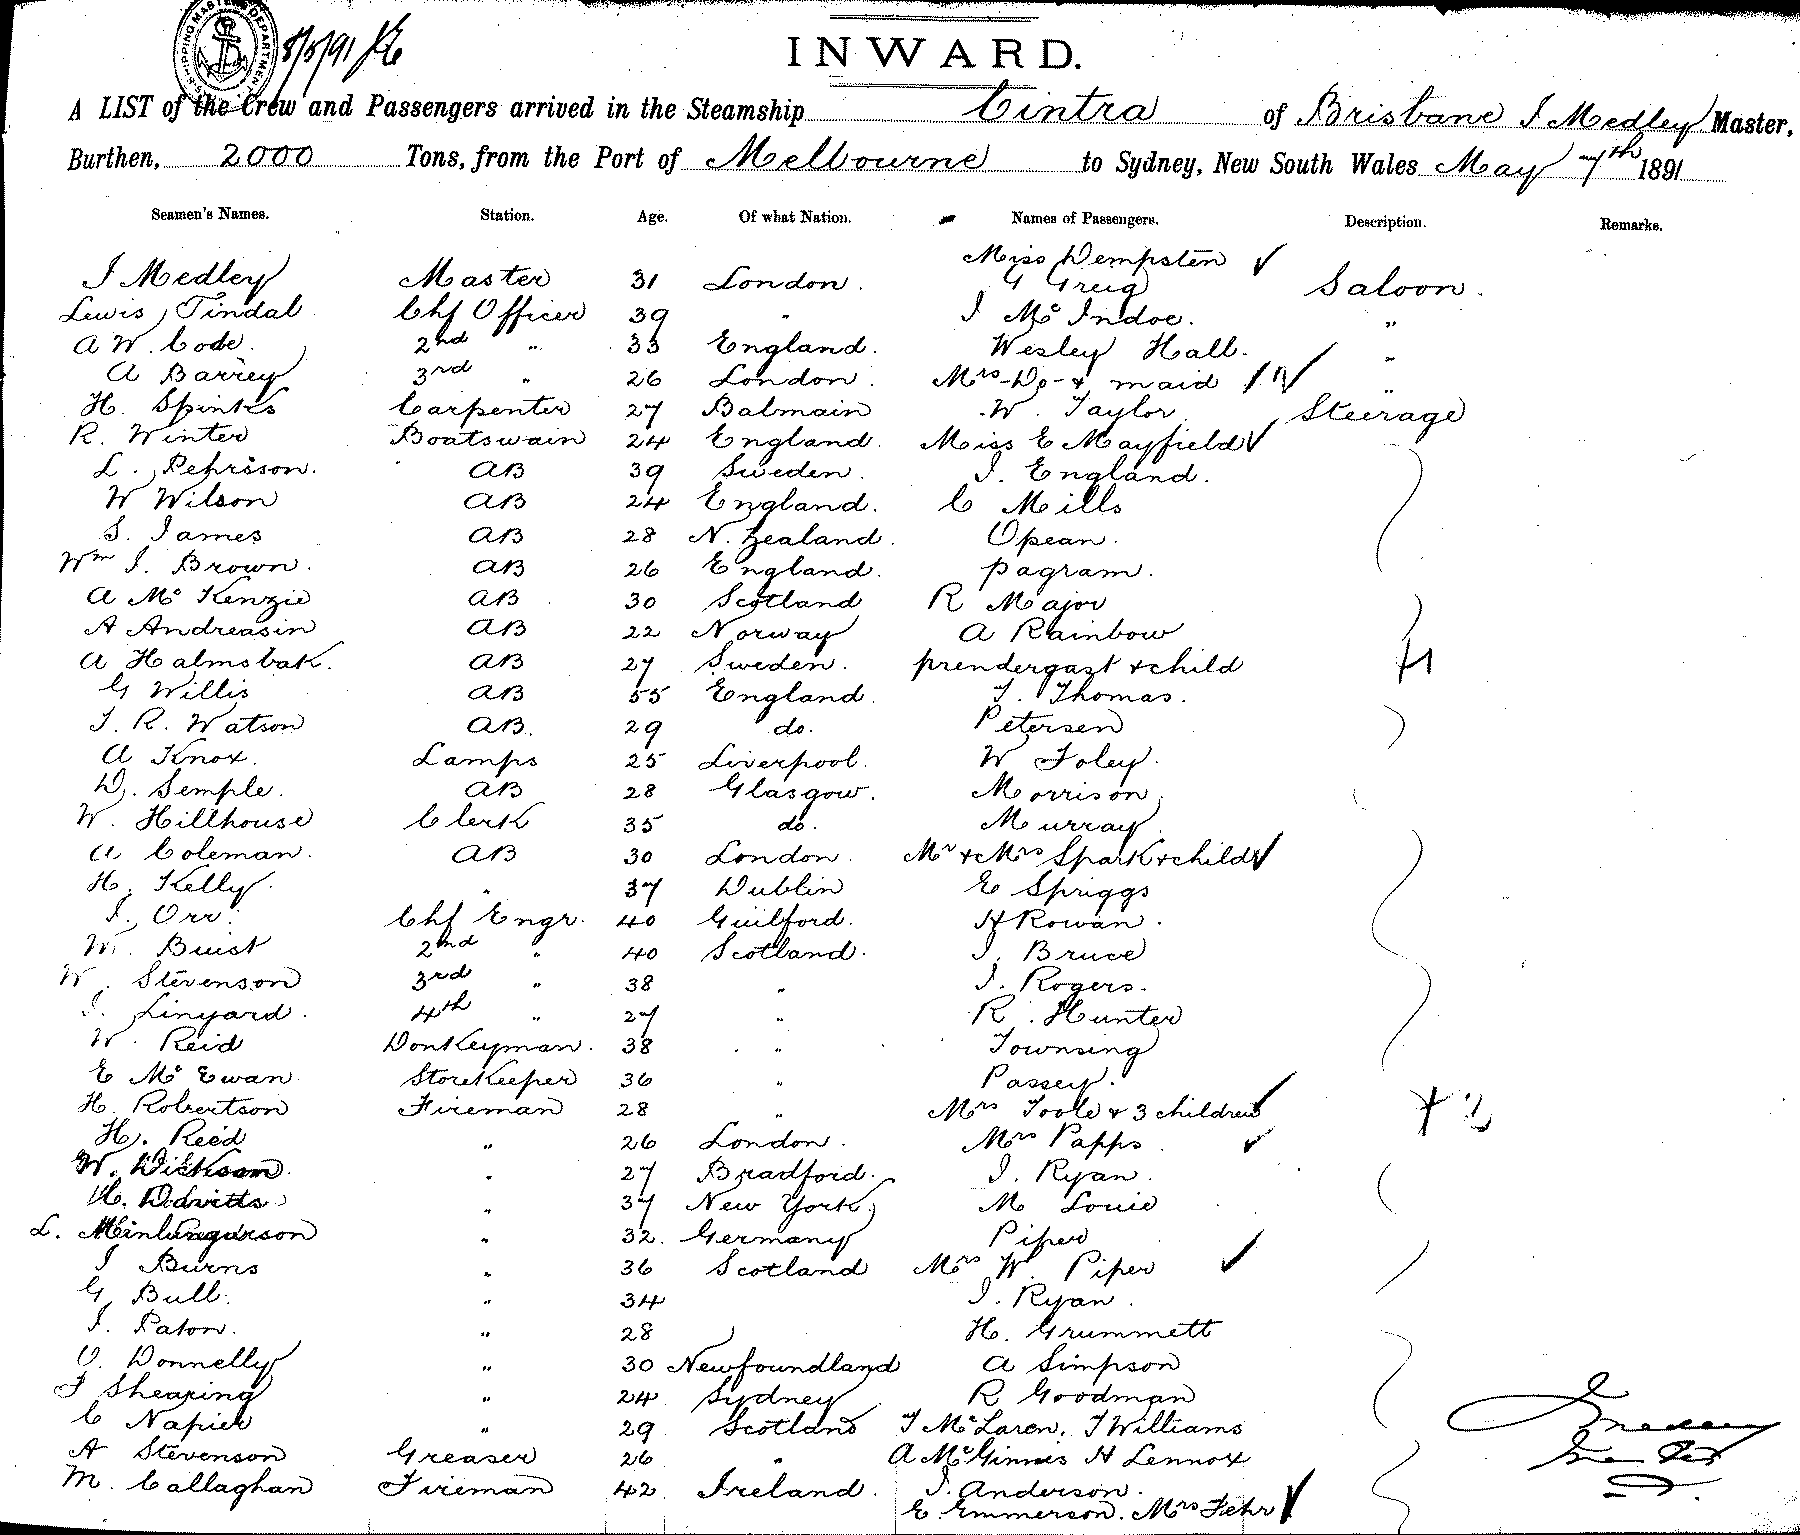 SHIPPING MASTER'S DEPARTMENT
8/5/91
INWARD.
A LIST of the Crew and Passengers arrived in the Steamship Cintra of Brisbane J Medley Master,
Burthen, 2000 Tons, from the Port of Melbourne to Sydney, New South Wales May 7th 1891
Seamen's Names. Station. Age. Of what Nation. Names of Passengers. Description. Remarks.
Miss Dempsten
J Medley Master 31 London. G Greig Saloon.
Lewis Tindal Chf Officer 39 " J Mc Indoe. "
A W. Code. 2nd " 33 England. Wesley Hall. "
A Barrey 3rd " 26 London. Mrs -Do- & maid "
H. Spinks Carpenter 27 Balmain W. Taylor Steerage
R. Winter Boatswain 24 England. Miss E Mayfield
L. Pehrsson. AB 39 Sweden. J. England.
W Wilson AB 24 England. C Mills
S. James AB 28 N. Zealand. Opean.
Wm J. Brown. AB 26 England. pagram.
A Mc Kenzie AB 30 Scotland R Major
A Andreasin AB 22 Norway A Rainbow
A Halmsbak. AB 27 Sweden. prendergast & child
G Willis AB 55 England. T. Thomas.
J. R. Watson AB. 29 do. Petersen
A Knox. Lamps 25 Liverpool. W Foley.
D. Semple. AB 28 Glasgow. Morrison.
W. Hillhouse Clerk 35 do. Murray
A Coleman. AB 30 London. Mr & Mrs Spark & child
H. Kelly. " 37 Dublin E Spriggs
J. Orr. Chf Engr. 40 Guilford. H Rowan.
W. Buist 2nd " 40 Scotland. J. Bruce
W. Stevenson 3rd " 38 " J. Rogers.
J. Linyard. 4th " 27 " R. Hunter
W. Reid Donkeyman. 38 " Townsing
E Mc Ewan Storekeeper 36 " Passey.
H. Robertson Fireman 28 " Mrs Toole & 3 children
H. Reed " 26 London. Mrs Papps
W. Dickson. " 27 Bradford. J. Ryan.
H. " 37 New York. M Louie
L. " 32. Germany Piper
J Burns " 36 Scotland Mrs W. Piper
G. Bull. " 34 J. Ryan.
J. Paton. " 28 H. Grummett
O. Donnelly " 30 Newfoundland A Simpson
F Shearing " 24 Sydney R Goodman
C Napier " 29 Scotland J McLaren. J Williams
A Stevenson Greaser 26 " A McGinnis H Lennox
M. Callaghan Fireman 42 Ireland. J. Anderson.
E. Emmerson. Mrs Fehr
J Medley
Master